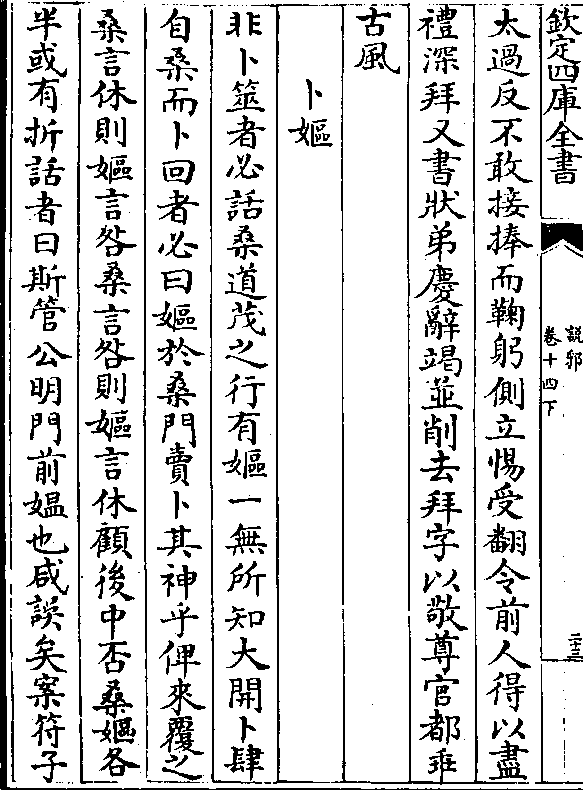 欽定四庫全書
說郛
卷十四下
二十三
太過反不敢接捧而鞠躬側立惕受翻令前人得以盡
禮深拜又書狀弟慶辭竭並削去拜字以敬尊官都乖
古風
卜嫗
非卜筮者必話桑道茂之行有嫗一無所知大開卜肆
自桑而卜回者必曰嫗於桑門賣卜其神乎俾來覆之
桑言休則嫗言咎桑言咎則嫗言休顧後中否桑嫗各
半或有折話者曰斯管公明門前媼也咸誤矣案符子